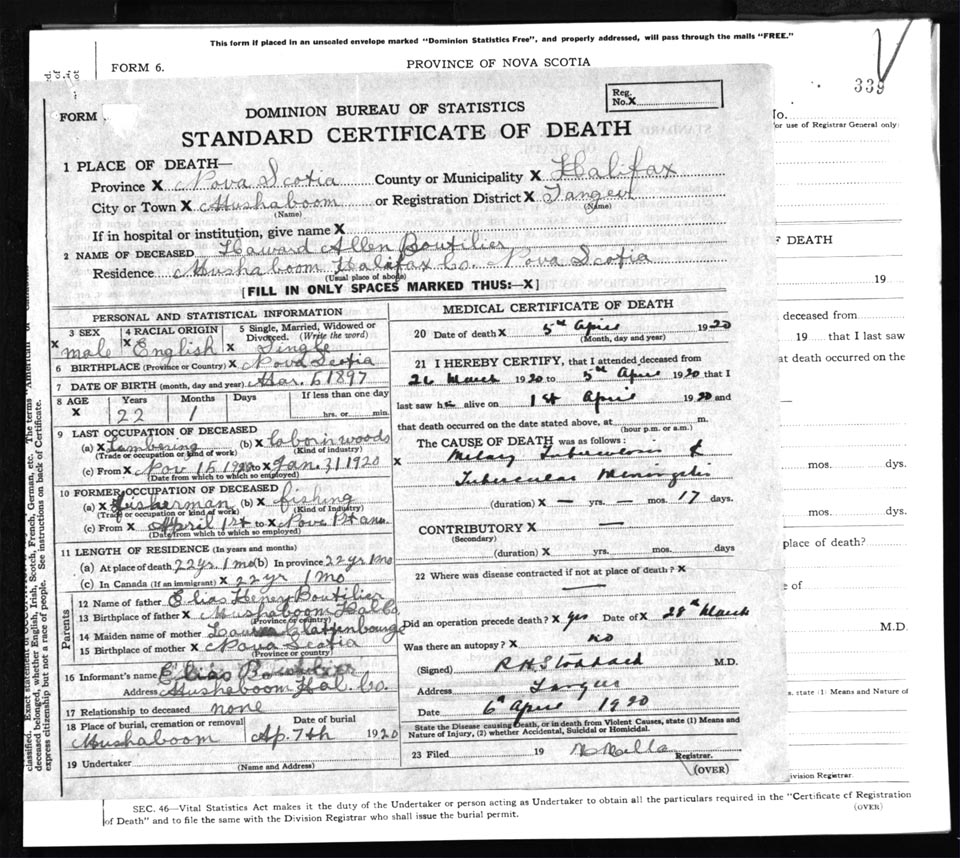 This form if placed in an unsealed envelope marked "Dominion Statistics Free", and properly addressed, will pass through the mails "FREE."
FORM 6.
PROVINCE OF NOVA SCOTIA
339
No.
for use of Registrar General only)
FORM
DOMINION BUREAU OF STATISTICS
Reg. No. X
STANDARD CERTIFICATE OF DEATH
1 PLACE OF DEATH—
Province X Nova Scotia County or Municipality X Halifax
City or Town X Mushaboom or Registration District X Tangier
(Name) (Name)
If in hospital or institution, give name X
2 NAME OF DECEASED Howard Allen Boutilier
Residence Mushaboom Halifax Co. Nova Scotia
(Usual place of abode)
[FILL IN ONLY SPACES MARKED THUS:—X]
PERSONAL AND STATISTICAL INFORMATION
3 SEX X male
4 RACIAL ORIGIN X English
5 Single, Married, Widowed or Divorced. (Write the word) X Single
6 BIRTHPLACE (Province or Country) X Nova Scotia
7 DATE OF BIRTH (month, day and year) Mar. 5 1897
8 AGE X Years 22 Months 1 Days If less than one day hrs. or min.
9 LAST OCCUPATION OF DECEASED
(a) X Lumbering (b) X labor in woods
(Trade or occupation or kind of work) (Kind of industry)
(c) From X Nov 15 1920 to X Jan. 31 1920
(Date from which to which so employed)
10 FORMER OCCUPATION OF DECEASED
(a) X fisherman (b) X fishing
(Trade or occupation or kind of work) (Kind of industry)
(c) From X April 1st to X Nov
(Date from which to which so employed)
11 LENGTH OF RESIDENCE (In years and months)
(a) At place of death 22 yr. 1 mo (b) In province 22 yr 1 mo
(c) In Canada (If an immigrant) X 22 yr 1 mo
Parents
12 Name of father X Elias Henry Boutilier
13 Birthplace of father X Mushaboom Hal Co
(Province or country)
14 Maiden name of mother
15 Birthplace of mother X Nova Scotia
(Province or country)
16 Informant's name Elias Boutilier
Address Mushaboom Hal. Co.
17 Relationship to deceased none
18 Place of burial, cremation or removal Mushaboom
Date of burial Ap. 7th 1920
19 Undertaker
(Name and Address)
MEDICAL CERTIFICATE OF DEATH
20 Date of death X 5th April 1920
(Month, day and year)
21 I HEREBY CERTIFY, that I attended deceased from
26 March 1920 to 5th April 1920 that I
last saw he alive on 1st April 1920 and
that death occurred on the date stated above, at m.
(hour p.m. or a.m.)
The CAUSE OF DEATH was as follows:
X Miliary Tuberculosis &
Tubercular Meningitis
(duration) X — yrs. — mos. 17 days.
CONTRIBUTORY X —
(Secondary)
(duration) X yrs. mos. days
22 Where was disease contracted if not at place of death? X
—
Did an operation precede death? X yes Date of X 28th March
Was there an autopsy? X no
(Signed) R H Stoddard M.D.
Address Tangier
Date 6th April 1920
State the Disease causing Death, or in death from Violent Causes, state (1) Means and
Nature of Injury, (2) whether Accidental, Suicidal or Homicidal.
23 Filed 19
Registrar.
(OVER)
F DEATH
19
deceased from
19 that I last saw
at death occurred on the
mos. days.
mos. days.
place of death?
e of
M.D.
s. state (1) Means and Nature of
ivision Registrar.
classified. Exact statement of
deceased belonged, whether English, Irish, Scotch, French, German, etc. The terms "American
express citizenship but not a race of people. See instructions on back of Certificate.
SEC. 46—Vital Statistics Act makes it the duty of the Undertaker or person acting as Undertaker to obtain all the particulars required in the "Certificate of Registration
of Death" and to file the same with the Division Registrar who shall issue the burial permit.
(OVER)